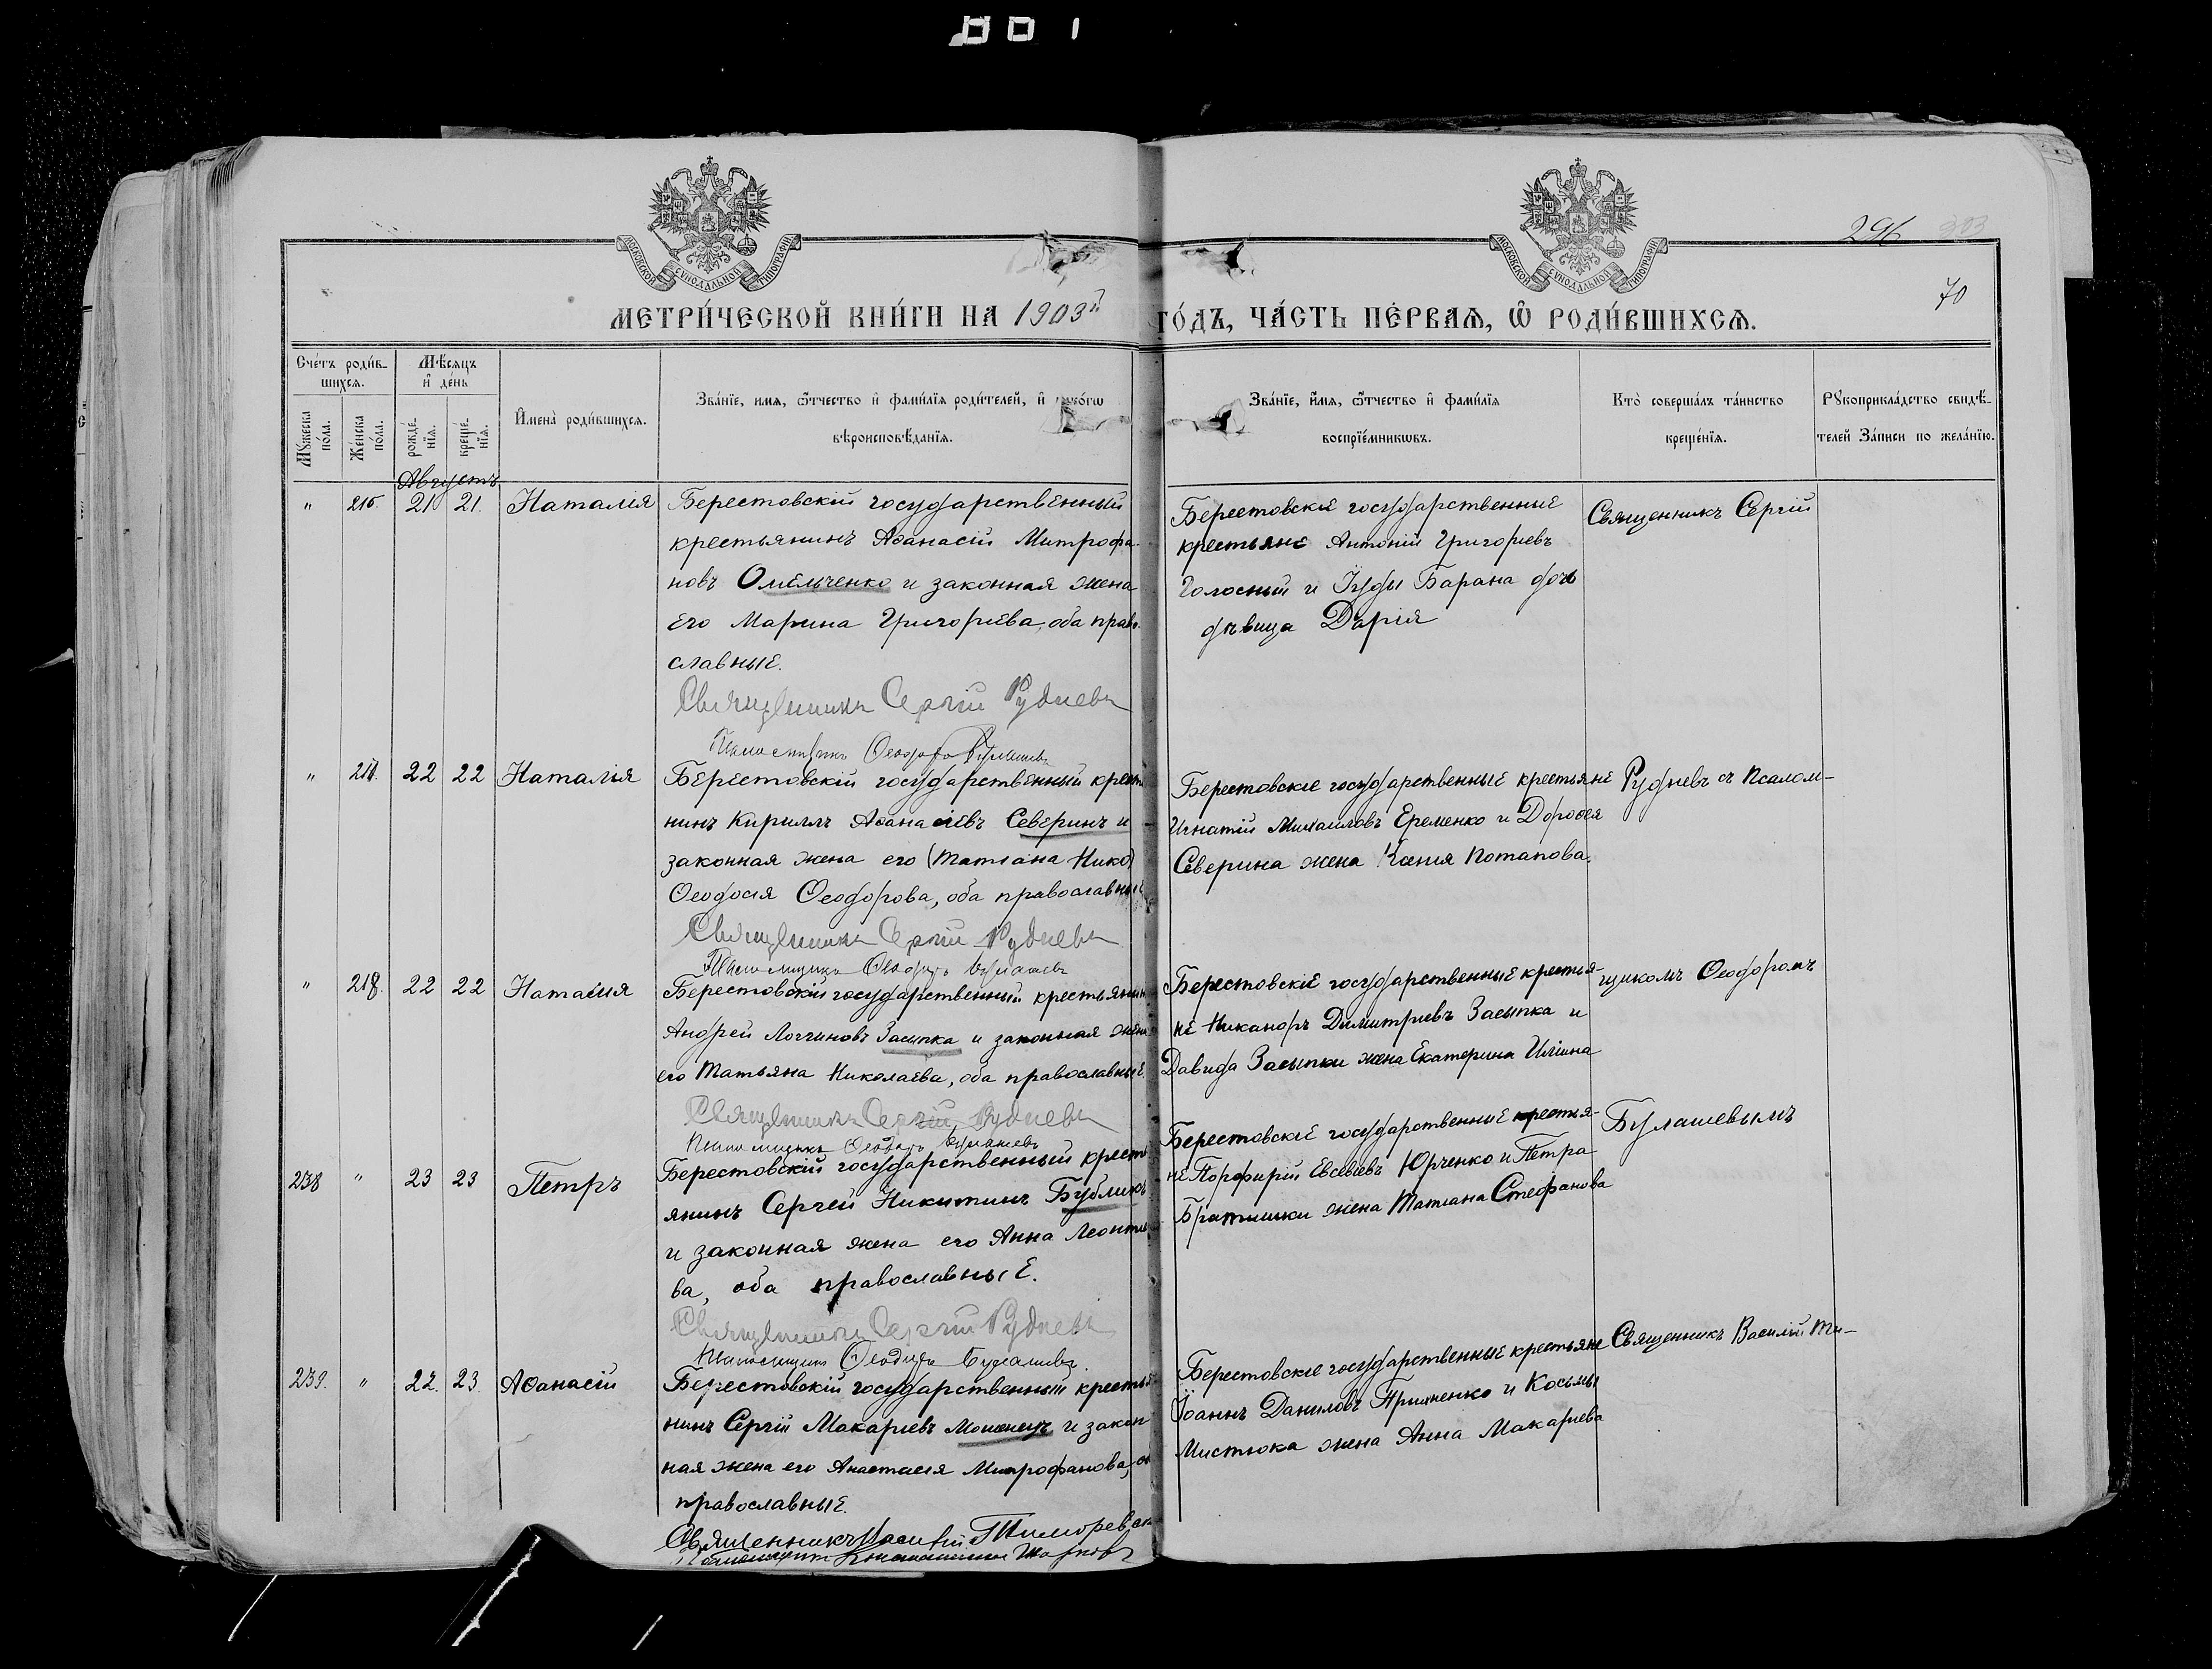 001
МОСКОВСКОЙ СѴНОДАЛЬНОЙ ТИПОГРАФІИ
МОСКОВСКОЙ СѴНОДАЛЬНОЙ ТИПОГРАФІИ
296 303
70
МЕТРИ́ЧЕСКОЙ КНИ́ГИ НА 1903й ГО́ДЪ, ЧА́СТЬ ПЕ́РВАѦ, Ѡ҆ РОДИ́ВШИХСѦ.
Сче́тъ роди́в-
шихсѧ.
Мꙋ́жеска по́ла.
Же́нска по́ла.
Мѣ́сѧцъ
и҆ де́нь
рожде́-
нїѧ.
креще́-
нїѧ.
И҆мена̀ роди́вшихсѧ.
Зва́нїе, имѧ, ѻ҆́тчество и҆ фами́лїѧ роди́телей, и҆ како́гѡ
вѣроисповѣ́данїѧ.
Зва́нїе, и҆́мѧ, ѻ҆́тчество и҆ фами́лїѧ
воспрїе́мникѡвъ.
Кто̀ соверша́лъ та́инство
креще́нїѧ.
Рꙋкоприкла́дство свидѣ́-
телей За́писи по жела́нїю.
Августъ
" 216. 21 21. Наталія
Берестовскій государственный
крестьянинъ Аѳанасій Митрофа-
новъ Омельченко и законная жена
его Марина Григоріева, оба право-
славные.
Священникъ Сергій Рудневъ
Псаломщикъ Ѳеодоръ Булашевъ
Берестовскіе государственные
крестьяне Антоній Григоріевъ
Голосный и Іуды Барана дочь
дѣвица Дарія
Священникъ Сергій
" 217. 22 22 Наталія
Берестовскій государственный крестья
нинъ Кириллъ Аѳанасіевъ Северинъ и
законная жена его (Татіана Нико)
Ѳеодосія Ѳеодорова, оба православные
Священникъ Сергій Рудневъ
Псаломщикъ Ѳеодоръ Булашевъ
Берестовскіе государственные крестьяне
Игнатій Михаиловъ Еременко и Дороѳея
Северина жена Ксенія Потапова.
Рудневъ съ Псалом-
" 218. 22 22 Наталія
Берестовскій государственный крестьянинъ
Андрей Логгиновъ Засыпка и законная жена
его Татьяна Николаева, оба православные.
Священникъ Сергій Рудневъ
Псаломщикъ Ѳеодоръ Булашевъ
Берестовскіе государственные крестья-
не Никаноръ Димитріевъ Засыпка и
Давида Засыпки жена Екатерина Иліина
щикомъ Ѳеодоромъ
238 " 23 23 Петръ
Берестовскій государственный кресть
янинъ Сергей Никитинъ Бубликъ
и законная жена его Анна Леонтіе
ва, оба православные.
Священникъ Сергій Рудневъ
Псаломщикъ Ѳеодоръ Булашевъ.
Берестовскіе государственные крестья-
не Порфирій Евсевіевъ Юрченко и Петра
Братишки жена Татіана Стефанова
Булашевымъ
239. " 22. 23. Аѳанасій
Берестовскій государственный крестья
нинъ Сергій Макаріевъ Мошенецъ и закон
ная жена его Анастасія Митрофанова, об
православные.
Священникъ Василій Тиморевск
Псаломщикъ Константинъ
Берестовскіе государственные крестьяне
Іоаннъ Даниловъ и Косьмы
Мистюка жена Анна Макаріева
Священникъ Василій Ти-